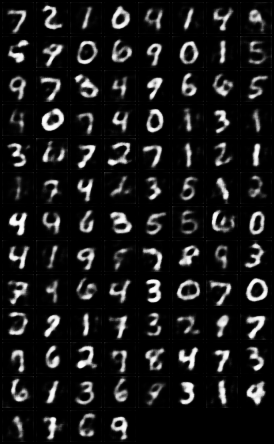 7 2 1 0 9 1 4 9
5 9 0 6 9 0 1 5
9 7 3 4 9 6 6 5
4 0 7 4 0 1 3 1
3 7 2 7 1 2 1
1 7 4 2 3 5 1 2
4 4 6 3 5 5 6 0
4 1 9 7 8 9 3
7 4 6 4 3 0 7 0
2 9 1 7 3 2 9 7
7 6 2 7 8 4 7 3
6 1 3 6 9 3 1 4
1 7 6 9